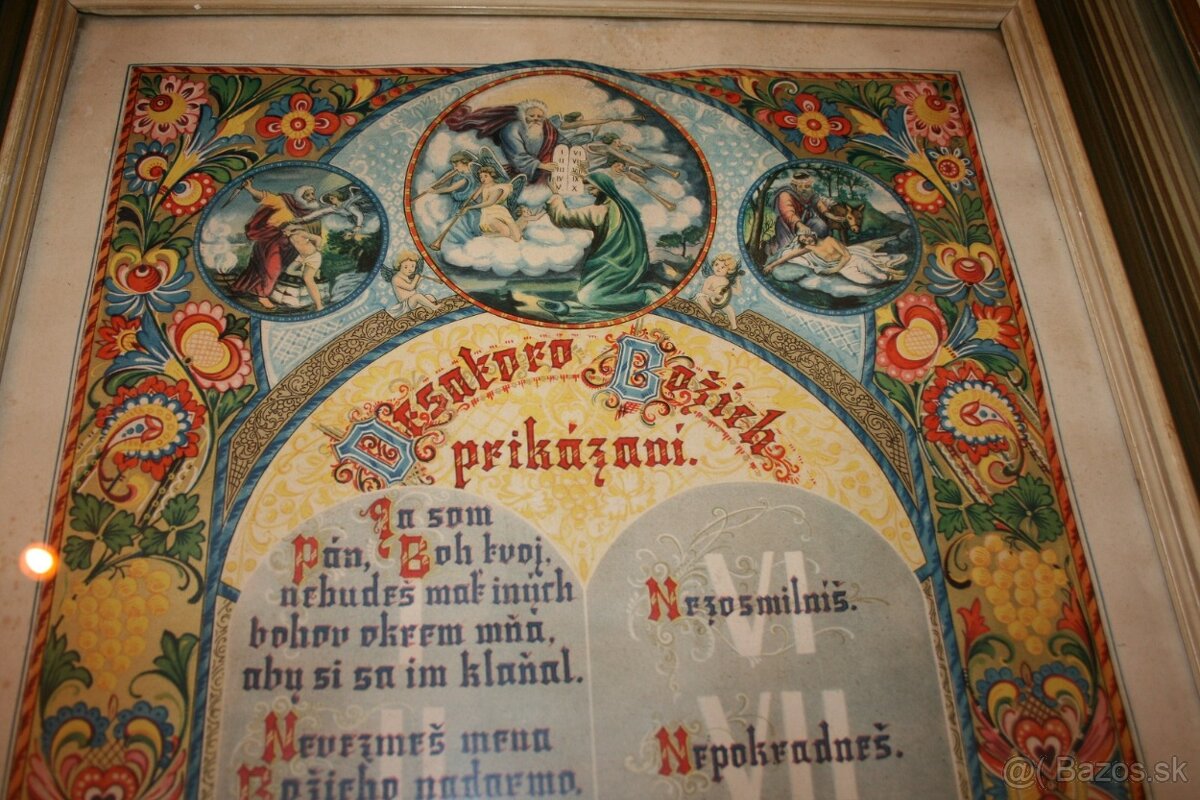 Desatoro Božích
prikázaní.
Ja som
Pán, Boh tvoj,
nebudeš mať iných
bohov okrem mňa,
aby si sa im klaňal.
II
Nevezmeš mena
Božieho nadarmo.
VI
Nezosmilníš.
VII
Nepokradneš.
Bazos.sk